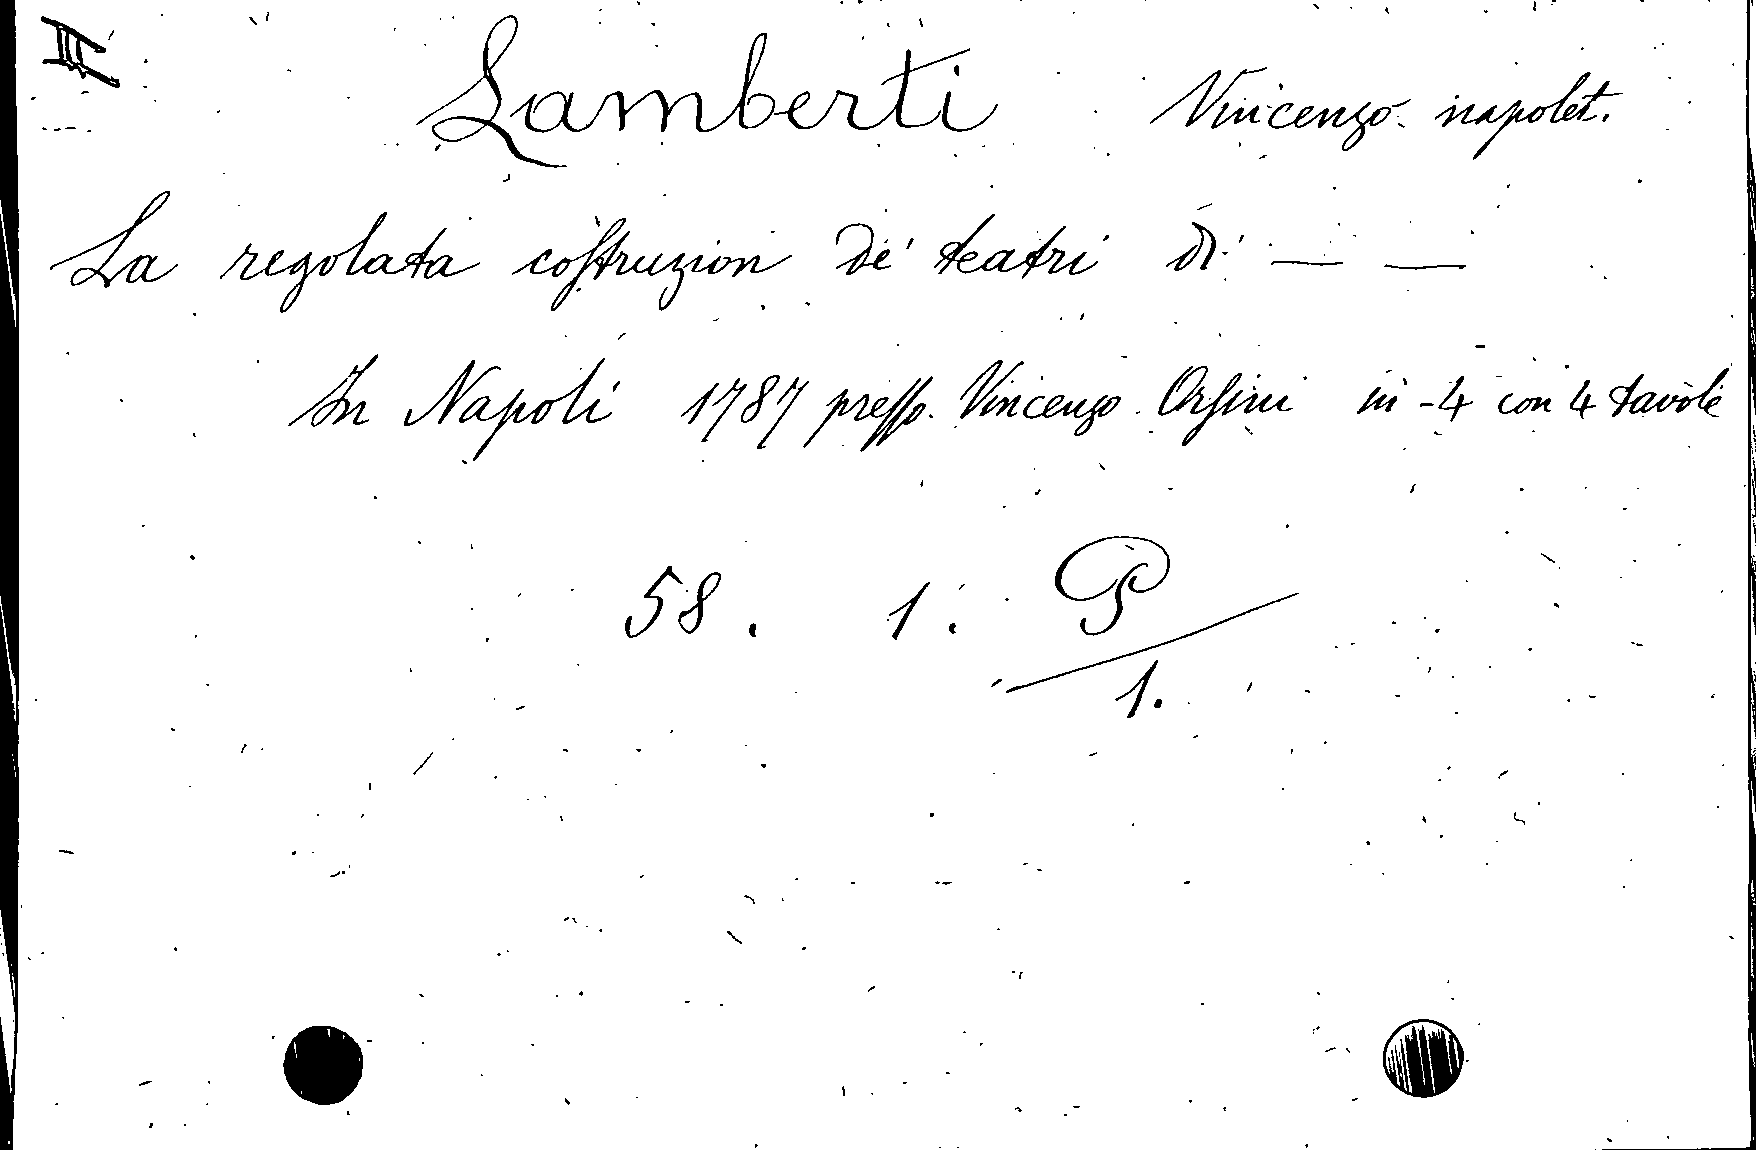 II
Lamberti Vincenzo napolet.
La regolata coſtruzion de' teatri di — —
In Napoli 1787 preſſo Vincenzo Orſini in-4 con 4 tavole
58. 1. P
1.